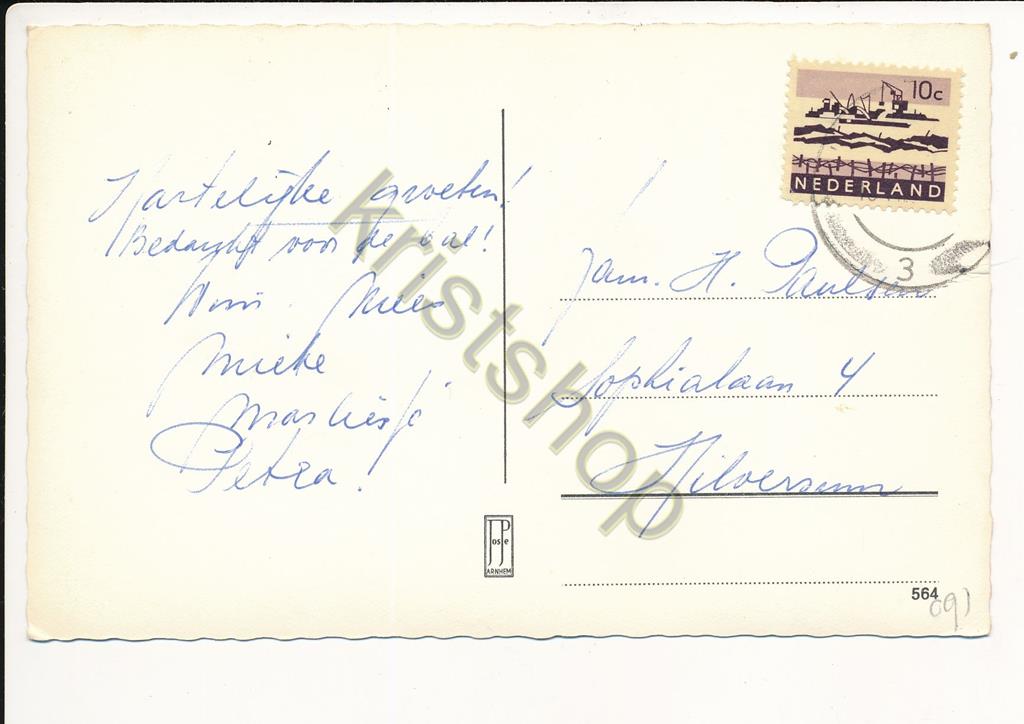 Hartelijke groeten!
Bedankt voor de
Wim. Mies
Mieke
Marliesje
Petra!
Fam. H. Paulsen
Sophialaan 4
Hilversum
10c
NEDERLAND
3
JosPé
ARNHEM
564
091
kristshop